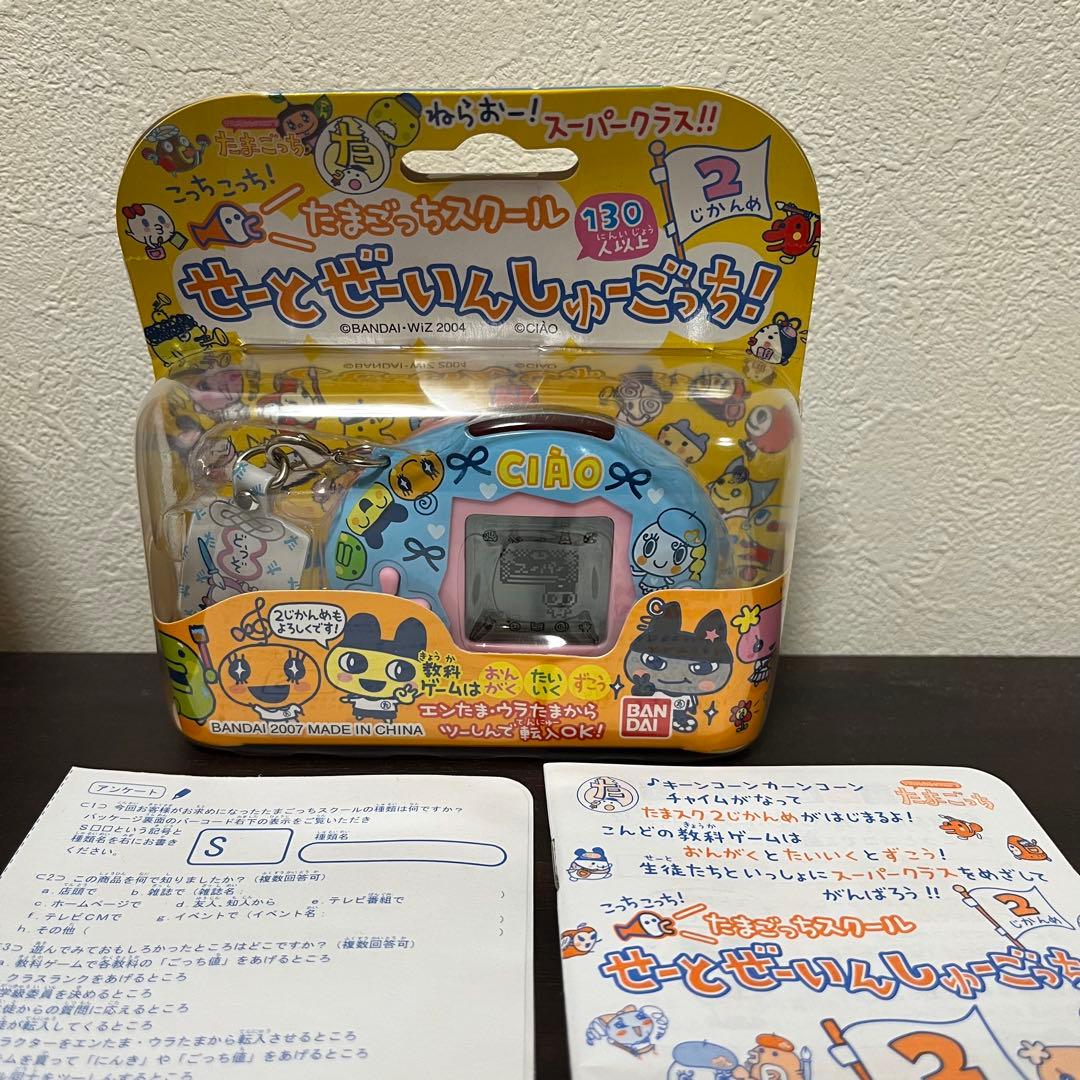 ねらおー!
スーパークラス!!
たまごっち
た
2
じかんめ
こっちこっち!
たまごっちスクール
130
にんいじょう
人以上
せーとぜーいんしゅーごっち!
©BANDAI・WiZ 2004 ©CIÀO
CIÀO
2じかんめも
よろしくです!
きょうか
教科
ゲームは
おんがく
たいいく
ずこう
エンたま・ウラたまから
てんにゅー
ツーしんで転入OK!
BANDAI
BANDAI 2007 MADE IN CHINA
アンケート
C1⊃ 今回お客様がお求めになったたまごっちスクールの種類は何ですか?
パッケージ裏面のバーコード右下の表示をご覧いただき
S□□という記号と
種類名を右にお書き
ください。
S
種類名
C2⊃ この商品を何で知りましたか?(複数回答可)
a. 店頭で b. 雑誌で(雑誌名: )
c. ホームページで d. 友人、知人から e. テレビ番組で
f. テレビCMで g. イベントで(イベント名: )
h. その他( )
3⊃ 遊んでみておもしろかったところはどこですか?(複数回答可)
a. 教科ゲームで各教科の「ごっち値」をあげるところ
クラスランクをあげるところ
学級委員を決めるところ
徒からの質問に応えるところ
が転入してくるところ
ラクターをエンたま・ウラたまから転入させるところ
ムを買って「にんき」や「ごっち値」をあげるところ
ル同士をツーしんするところ
た
♪キーンコーンカーンコーン
チャイムがなって
たまスク2じかんめがはじまるよ!
たまごっち
きょうか
こんどの教科ゲームは
おんがくとたいいくとずこう!
せーと
生徒たちといっしょにスーパークラスをめざして
がんばろう!!
こっちこっち!
2
じかんめ
たまごっちスクール
せーとぜーいんしゅーごっち
2